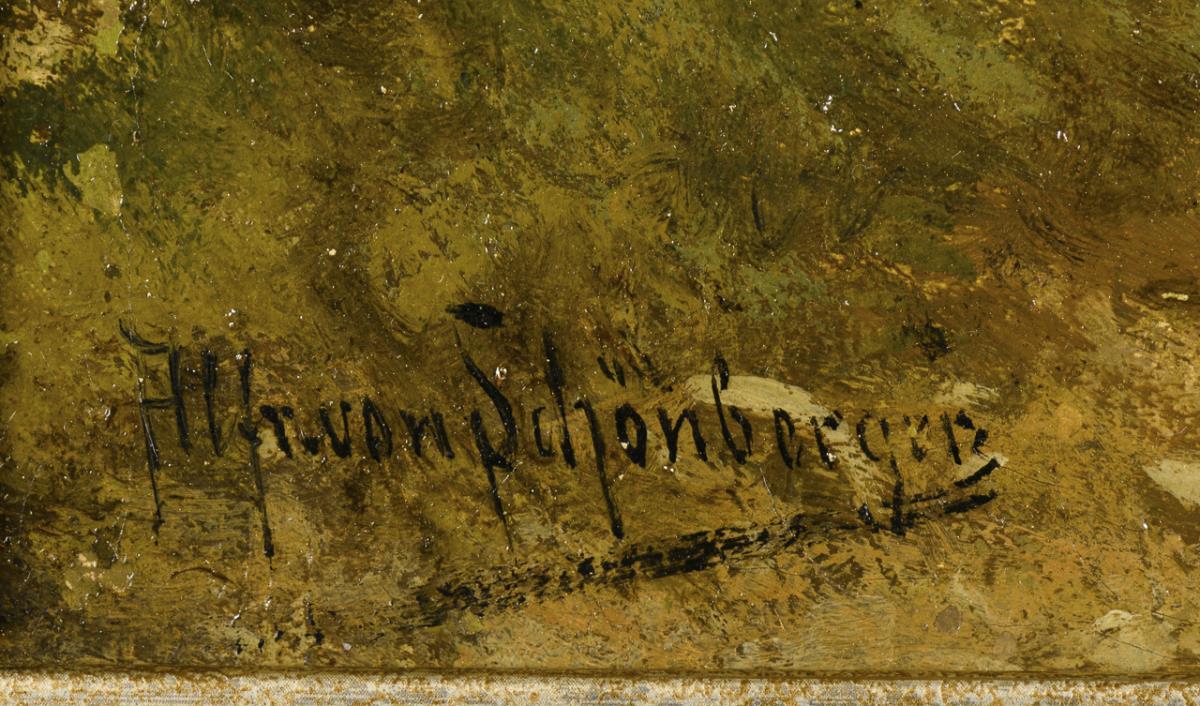 Alfr von Schönberger